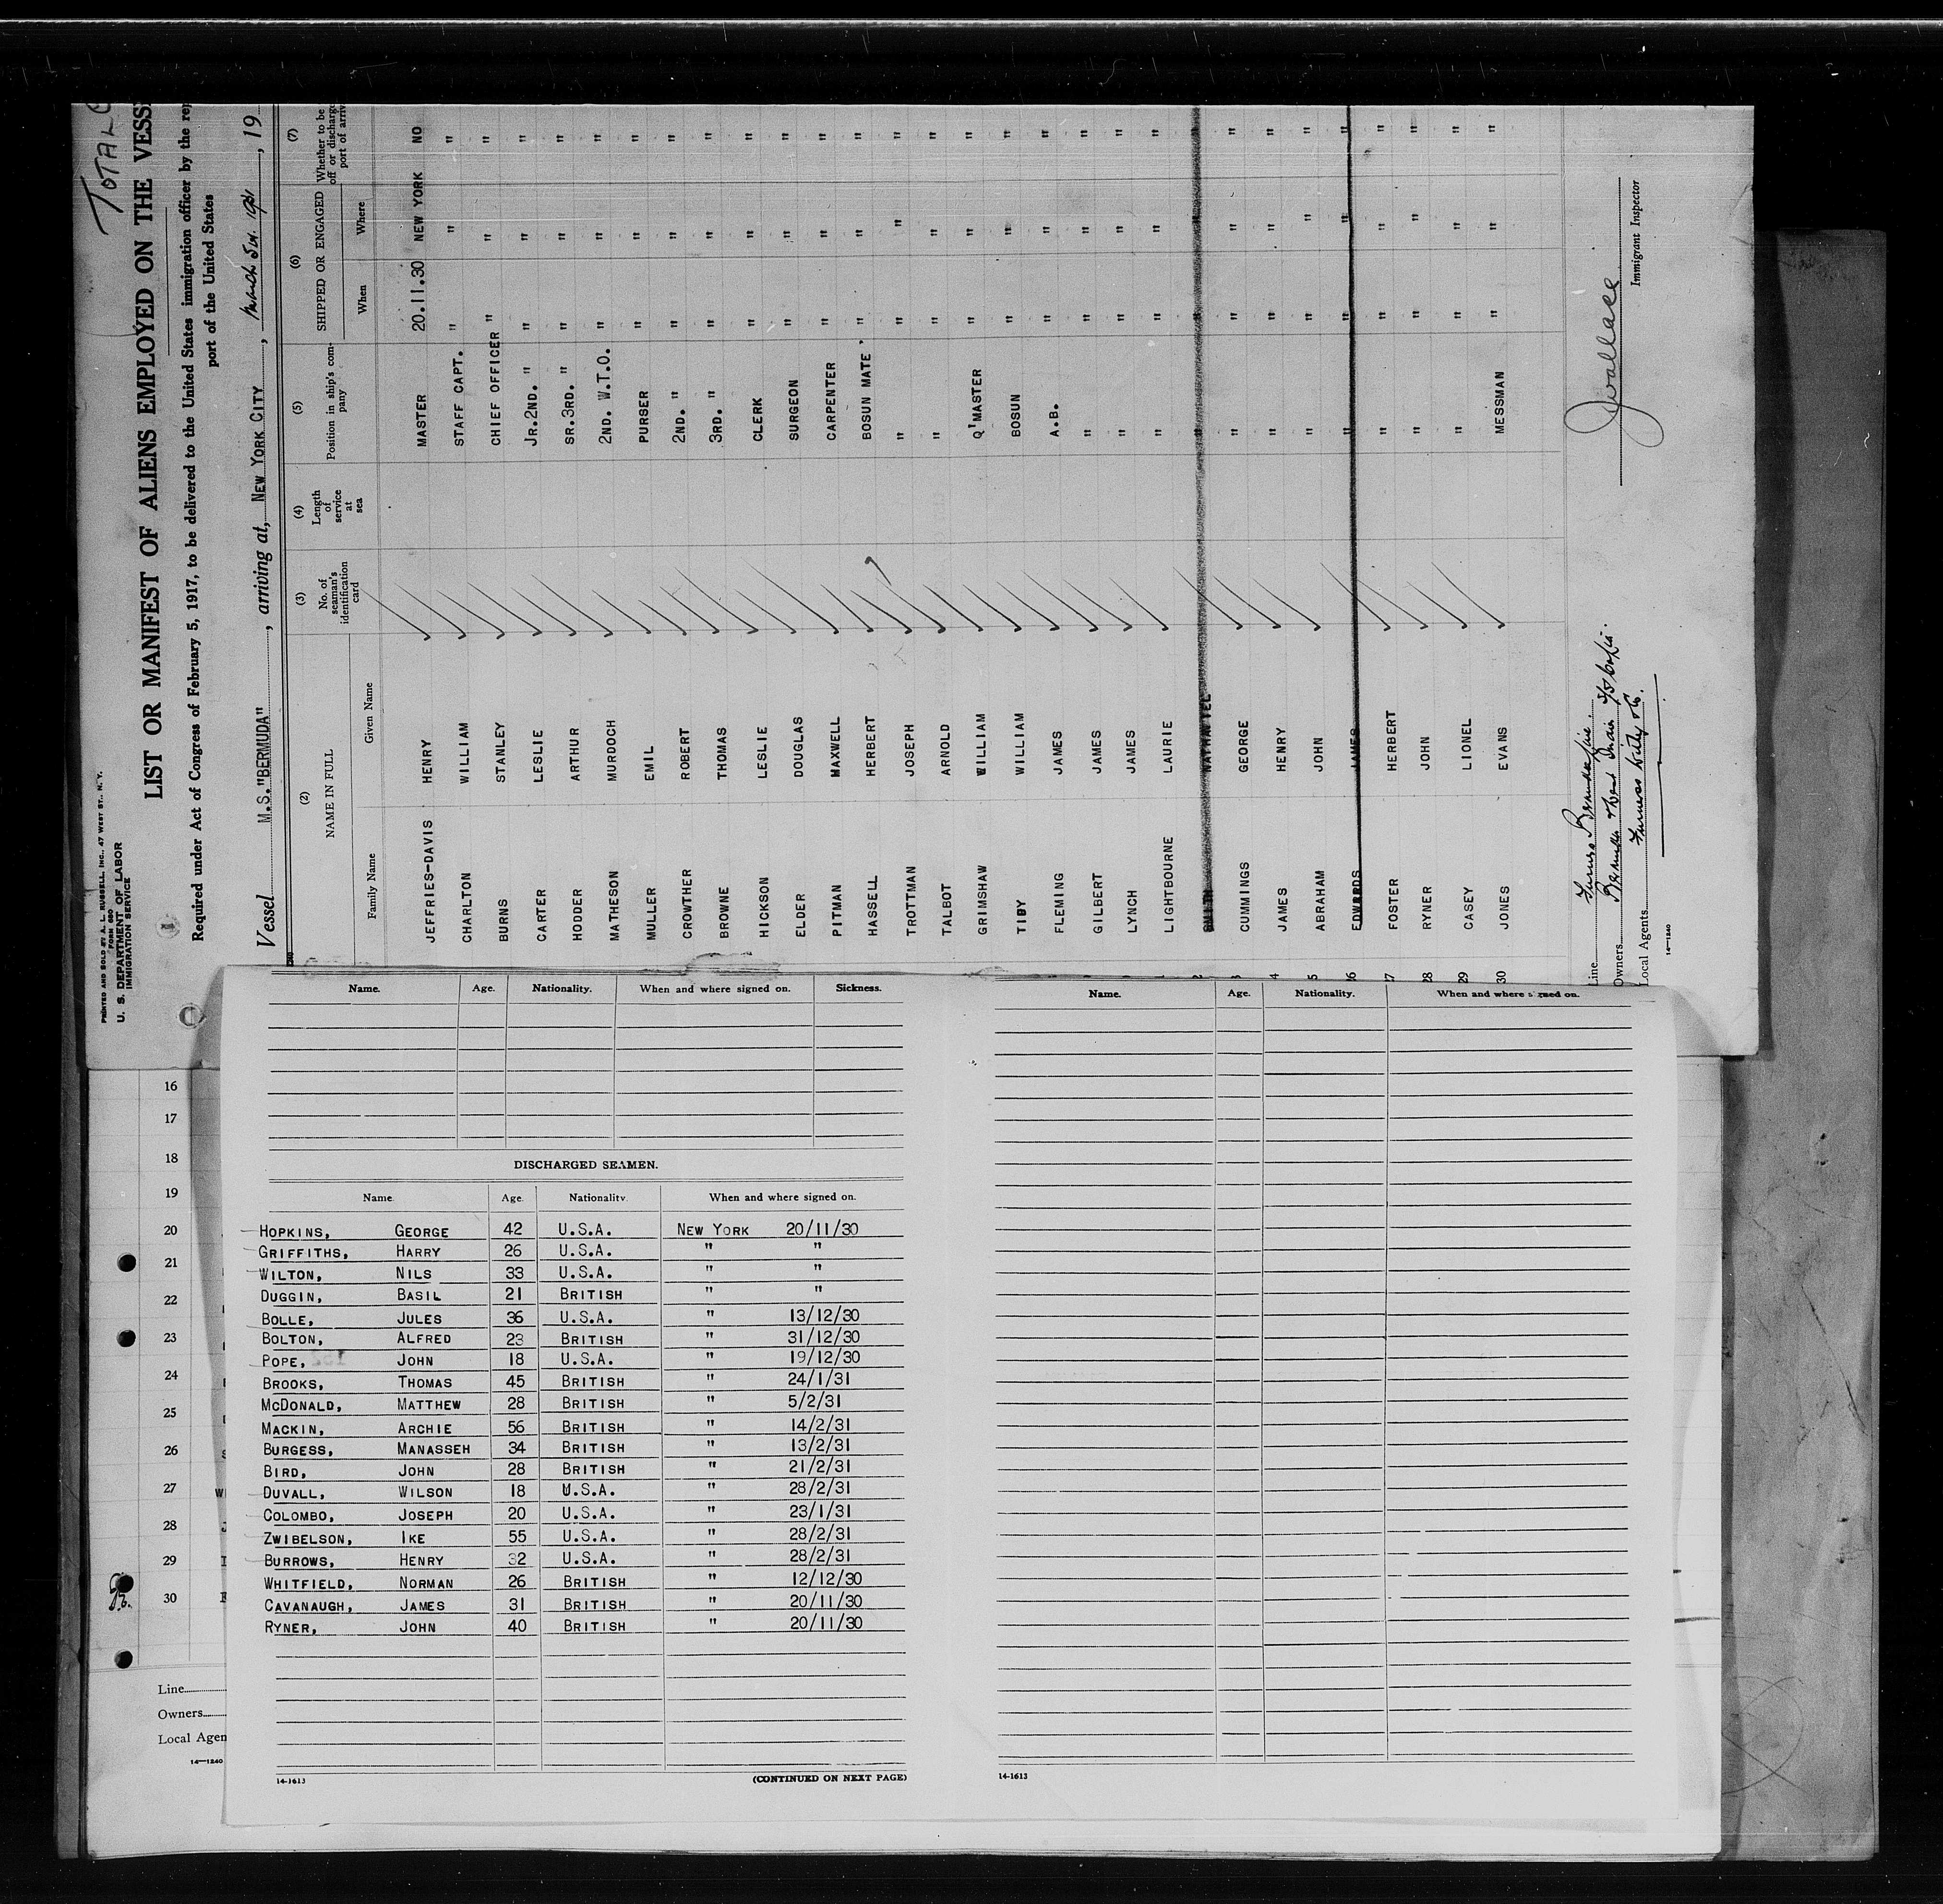 TOTAL
PRINTED AND SOLD BY A. L. RUSSELL, INC., 47 WEST ST., N. Y.
FORM 680
U. S. DEPARTMENT OF LABOR
IMMIGRATION SERVICE
LIST OR MANIFEST OF ALIENS EMPLOYED ON THE VESS
Required under Act of Congress of February 5, 1917, to be delivered to the United States immigration officer by the rep
port of the United States
Vessel M.S."BERMUDA", arriving at, NEW YORK CITY, March 5th. 1931, 19
(2) NAME IN FULL (3) No. of seaman's identification card (4) Length of service at sea (5) Position in ship's company (6) SHIPPED OR ENGAGED (7) Whether to be off or discharg port of arriv
Family Name Given Name When Where
JEFFRIES-DAVIS HENRY MASTER 20.11.30 NEW YORK NO
CHARLTON WILLIAM STAFF CAPT. " " "
BURNS STANLEY CHIEF OFFICER " " "
CARTER LESLIE JR.2ND. " " " "
HODDER ARTHUR SR.3RD. " " " "
MATHESON MURDOCH 2ND. W.T.O. " " "
MULLER EMIL PURSER " " "
CROWTHER ROBERT 2ND. " " " "
BROWNE THOMAS 3RD. " " " "
HICKSON LESLIE CLERK " " "
ELDER DOUGLAS SURGEON " " "
PITMAN MAXWELL CARPENTER " " "
HASSELL HERBERT BOSUN MATE " " "
TROTTMAN JOSEPH " " " "
TALBOT ARNOLD " " " "
GRIMSHAW WILLIAM Q'MASTER " " "
TIDY WILLIAM BOSUN " " "
FLEMING JAMES A.B. " " "
GILBERT JAMES " " " "
LYNCH JAMES " " " "
LIGHTBOURNE LAURIE " " " "
2 SMITH NATHANIEL " " " "
3 CUMMINGS GEORGE " " " "
4 JAMES HENRY " " " "
5 ABRAHAM JOHN " " " "
26 EDWARDS JAMES " " " "
27 FOSTER HERBERT " " " "
28 RYNER JOHN " " " "
29 CASEY LIONEL " " " "
30 JONES EVANS MESSMAN " " "
Line Furness Bermuda Line.
Owners Bermuda & West Indies S/S Co. Ltd.
Local Agents Furness Withy & Co.
14-1240
Immigrant Inspector
Name. Age. Nationality. When and where signed on. Sickness.
DISCHARGED SEAMEN.
Name. Age. Nationality. When and where signed on.
HOPKINS, GEORGE 42 U.S.A. NEW YORK 20/11/30
GRIFFITHS, HARRY 26 U.S.A. " "
WILTON, NILS 33 U.S.A. " "
DUGGIN, BASIL 21 BRITISH " "
BOLLE, JULES 36 U.S.A. " 13/12/30
BOLTON, ALFRED 23 BRITISH " 31/12/30
POPE, JOHN 18 U.S.A. " 19/12/30
BROOKS, THOMAS 45 BRITISH " 24/1/31
MCDONALD, MATTHEW 28 BRITISH " 5/2/31
MACKIN, ARCHIE 56 BRITISH " 14/2/31
BURGESS, MANASSEH 34 BRITISH " 13/2/31
BIRD, JOHN 28 BRITISH " 21/2/31
DUVALL, WILSON 18 U.S.A. " 28/2/31
COLOMBO, JOSEPH 20 U.S.A. " 23/1/31
ZWIBELSON, IKE 55 U.S.A. " 28/2/31
BURROWS, HENRY 32 U.S.A. " 28/2/31
WHITFIELD, NORMAN 26 BRITISH " 12/12/30
CAVANAUGH, JAMES 31 BRITISH " 20/11/30
RYNER, JOHN 40 BRITISH " 20/11/30
14-1613
(CONTINUED ON NEXT PAGE)
Name. Age. Nationality. When and where signed on.
14-1613
16
17
18
19
20
21
22
23
24
25
26
27
28
29
30
Line
Owners
Local Agen
14-1240